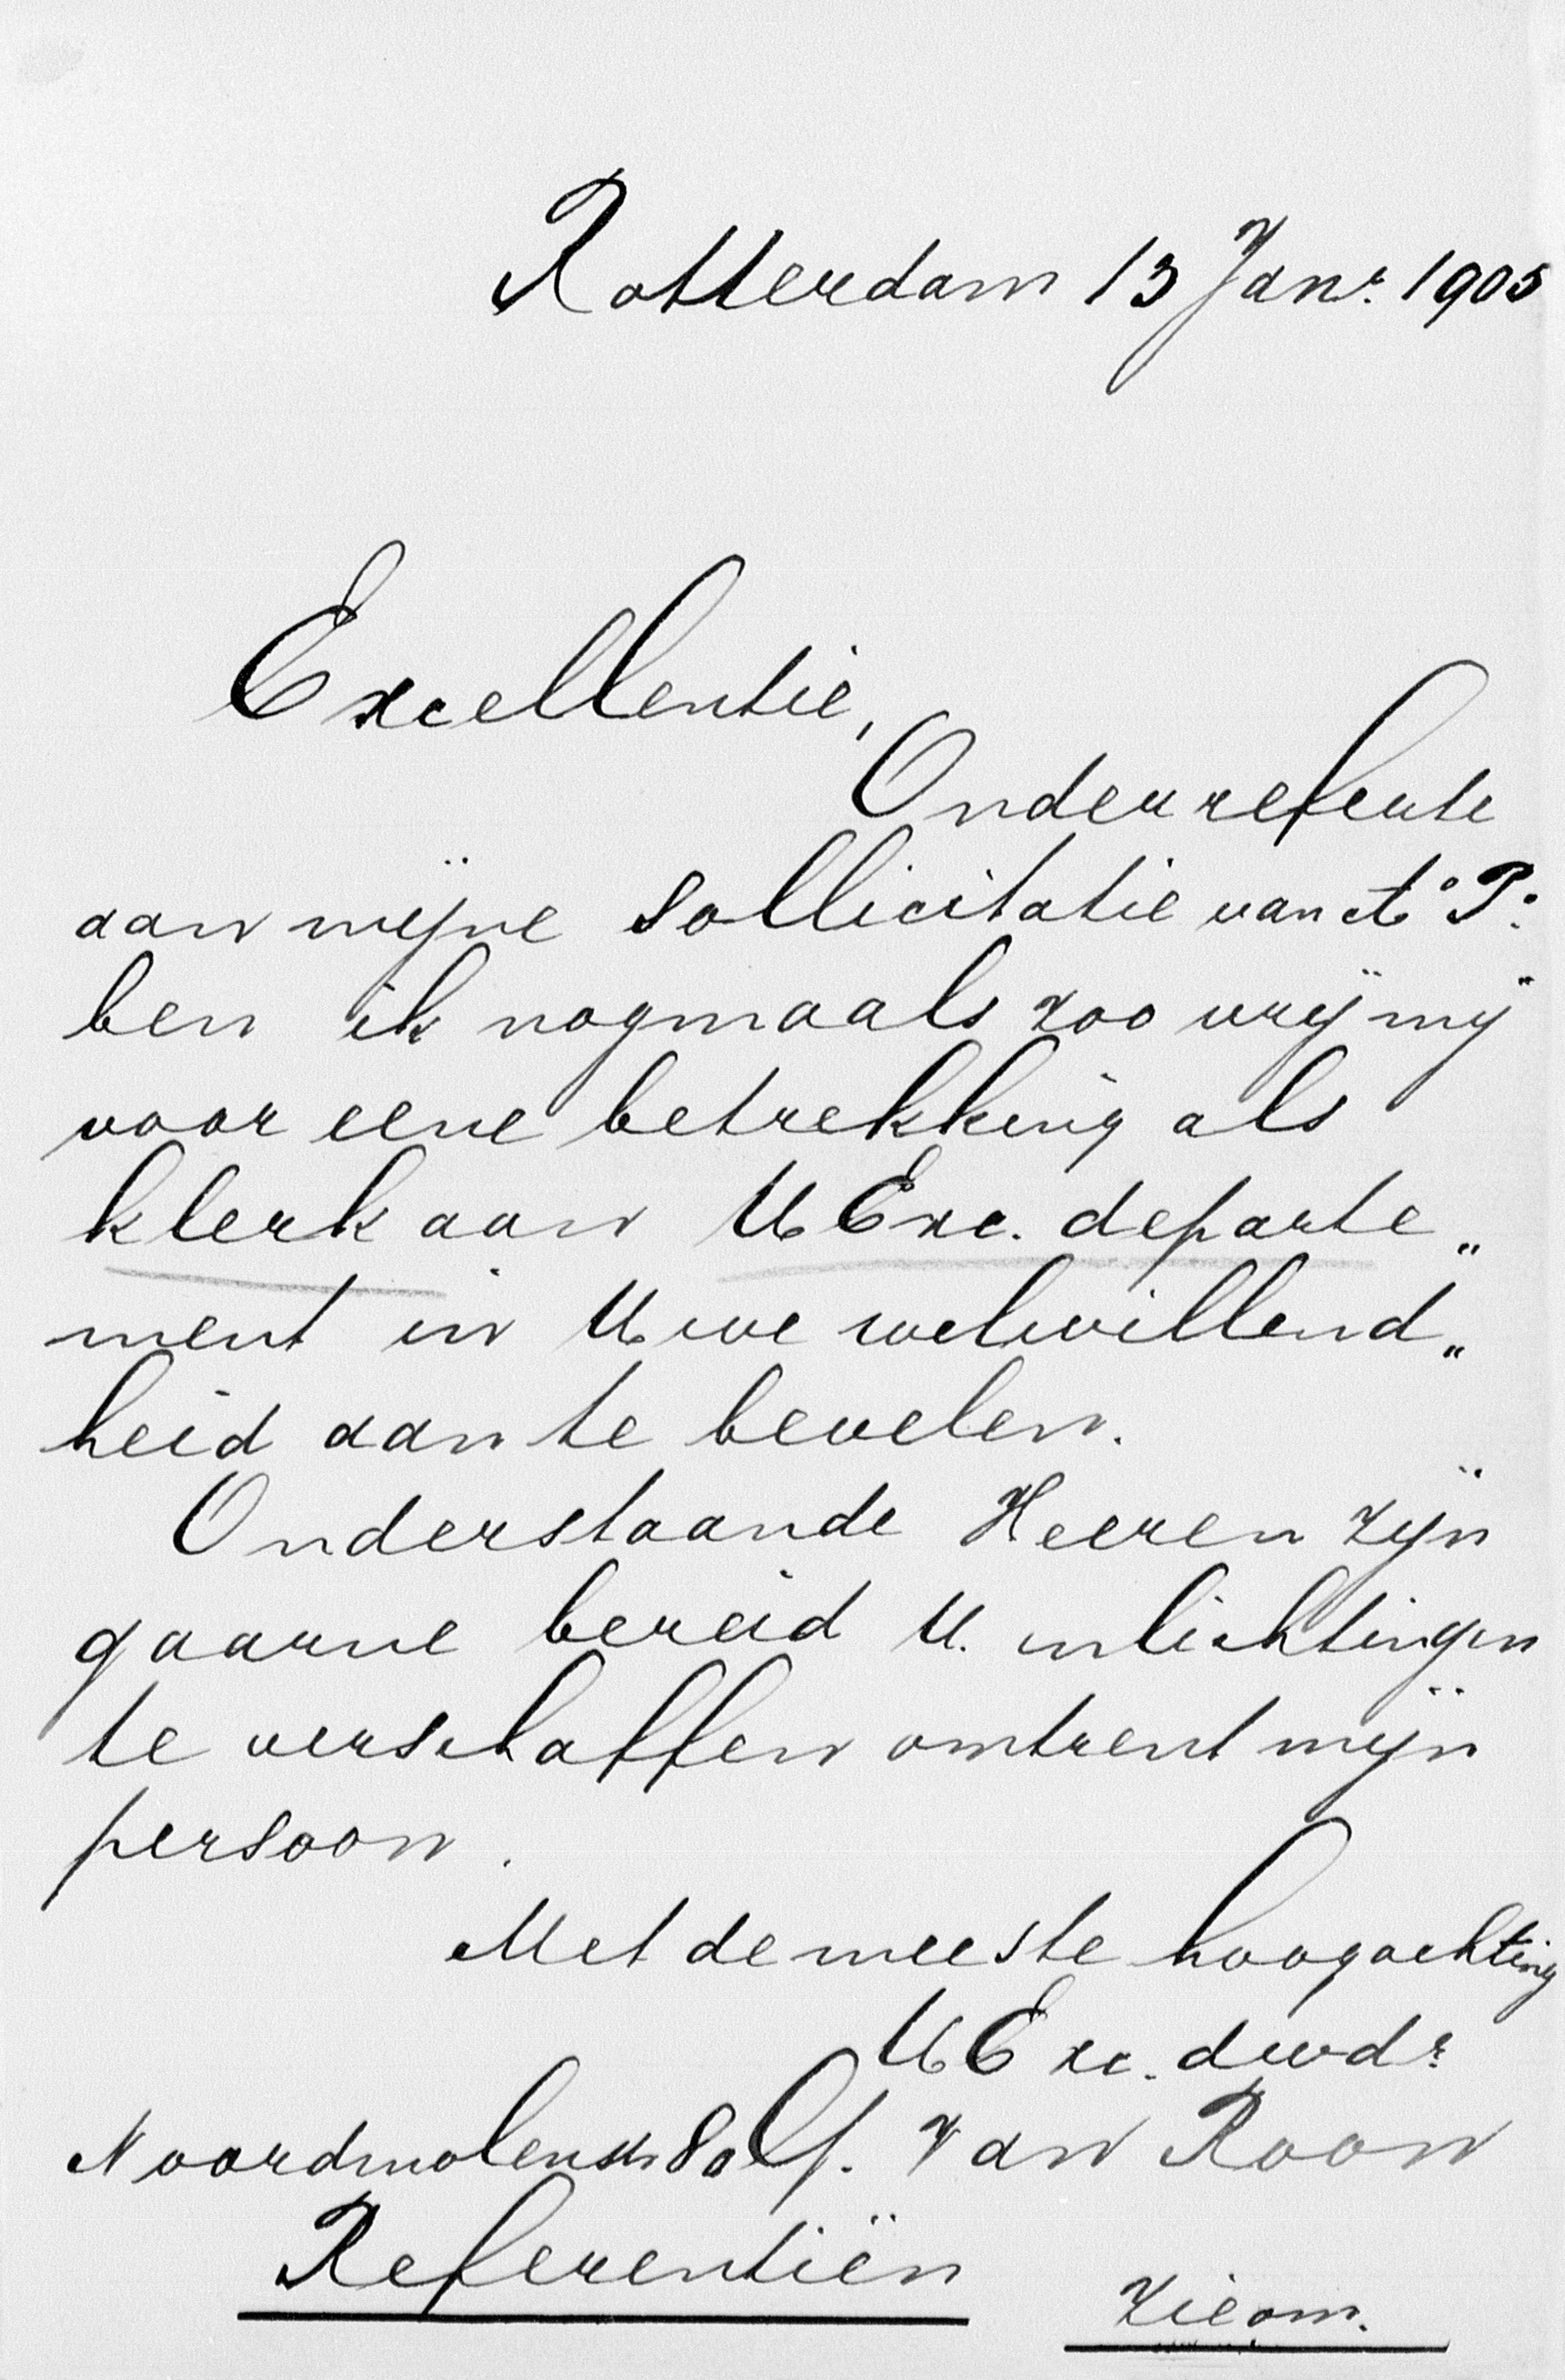 Rotterdam 13 Janr. 1905
Excellentie,
Onder referte
aan mijne sollicitatie van do Po:
ben ik nogmaals zoo vrij mij
voor eene betrekking als
klerk aan UExc. departe„
ment in Uwe welwillend„
heid aan te bevelen.
Onderstaande Heeren zijn
gaarne bereid U. inlichtingen
te verschaffen omtrent mijn
persoon.
Met de meeste hoogachting
UExc. dwdr
Noordmolenstr 80 Van Roon
Referentiën
Zie om.